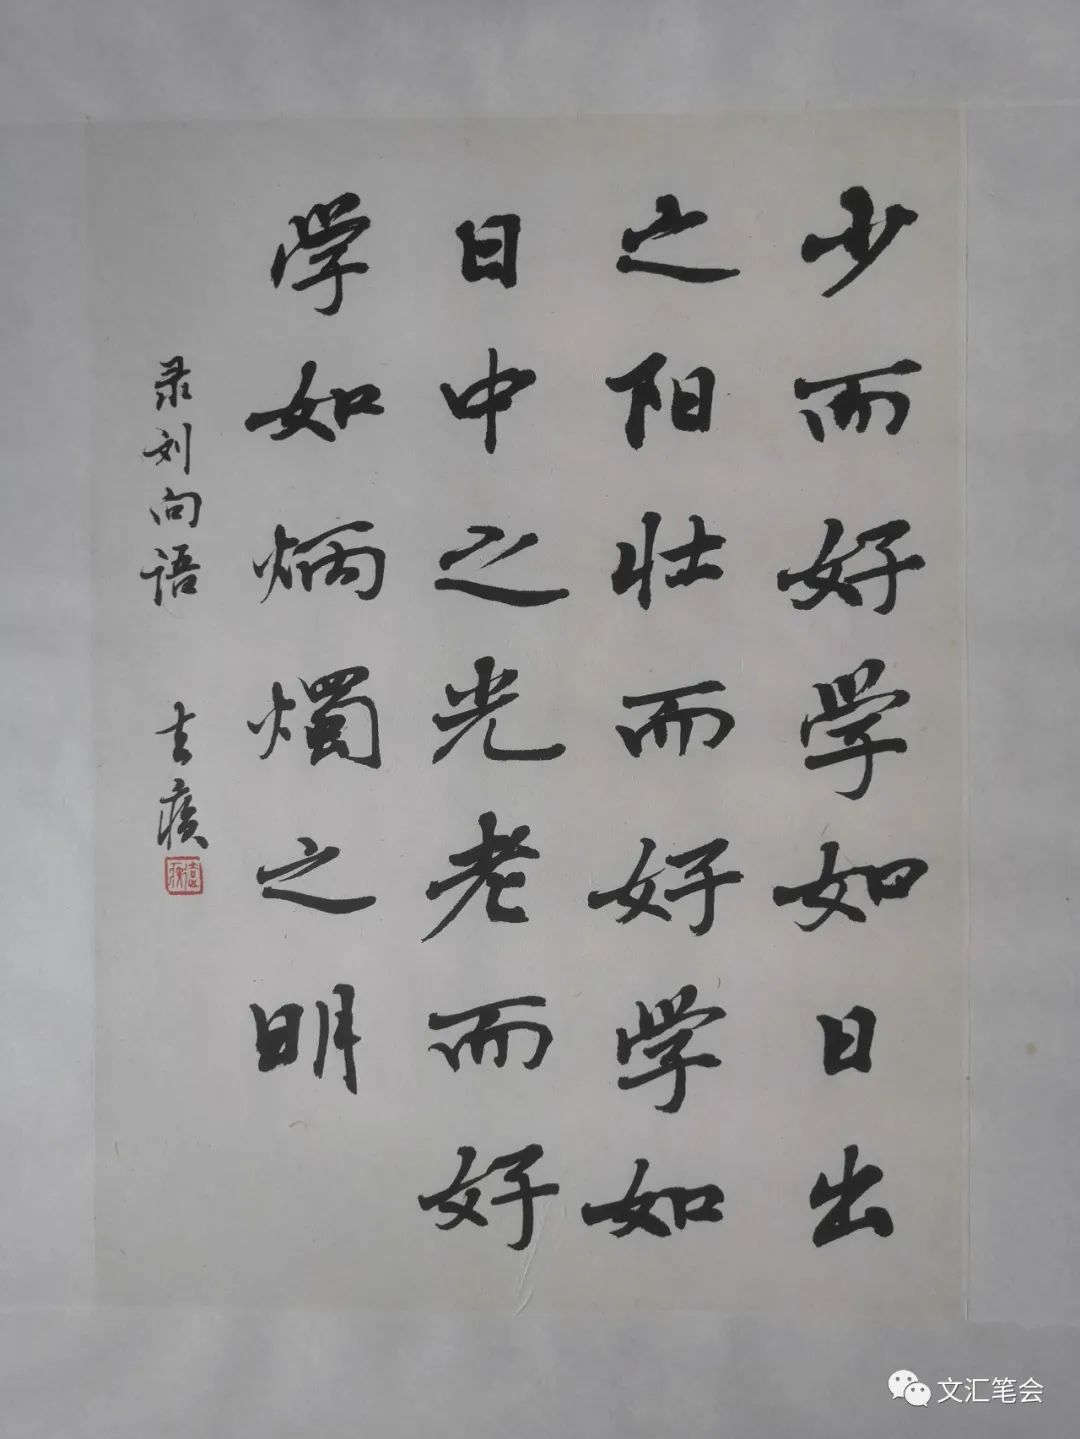 少而好学如日出
之阳壮而好学如
日中之光老而好
学如炳燭之明
录刘向语
文汇笔会